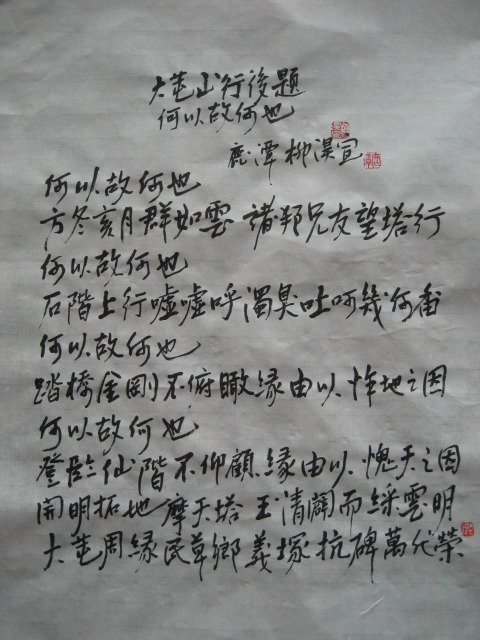 大芚山行後題
何以故何也
鹿潭 柳漢宣
何以故何也
方冬亥月群如雲 諸邦兄友望塔行
何以故何也
石階上行噓噓呼 濁臭吐呵幾何番
何以故何也
踏橋金剛不俯瞰 緣由以 怍地之因
何以故何也
登臨仙階不仰顧 緣由以 愧天之因
開明拓地 摩天塔 玉清闢而綵雲明
大芚周緣民草鄉 義塚抗碑萬代榮